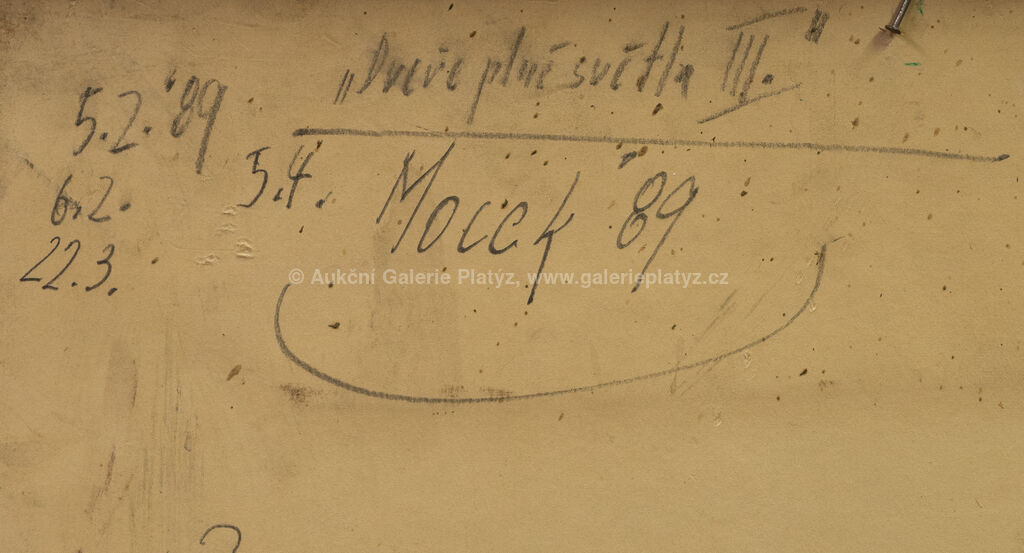 „Dveře plné světla III."
5.2.'89
5.4. Mocek '89
6.2.
22.3.
© Aukční Galerie Platýz, www.galerieplatyz.cz